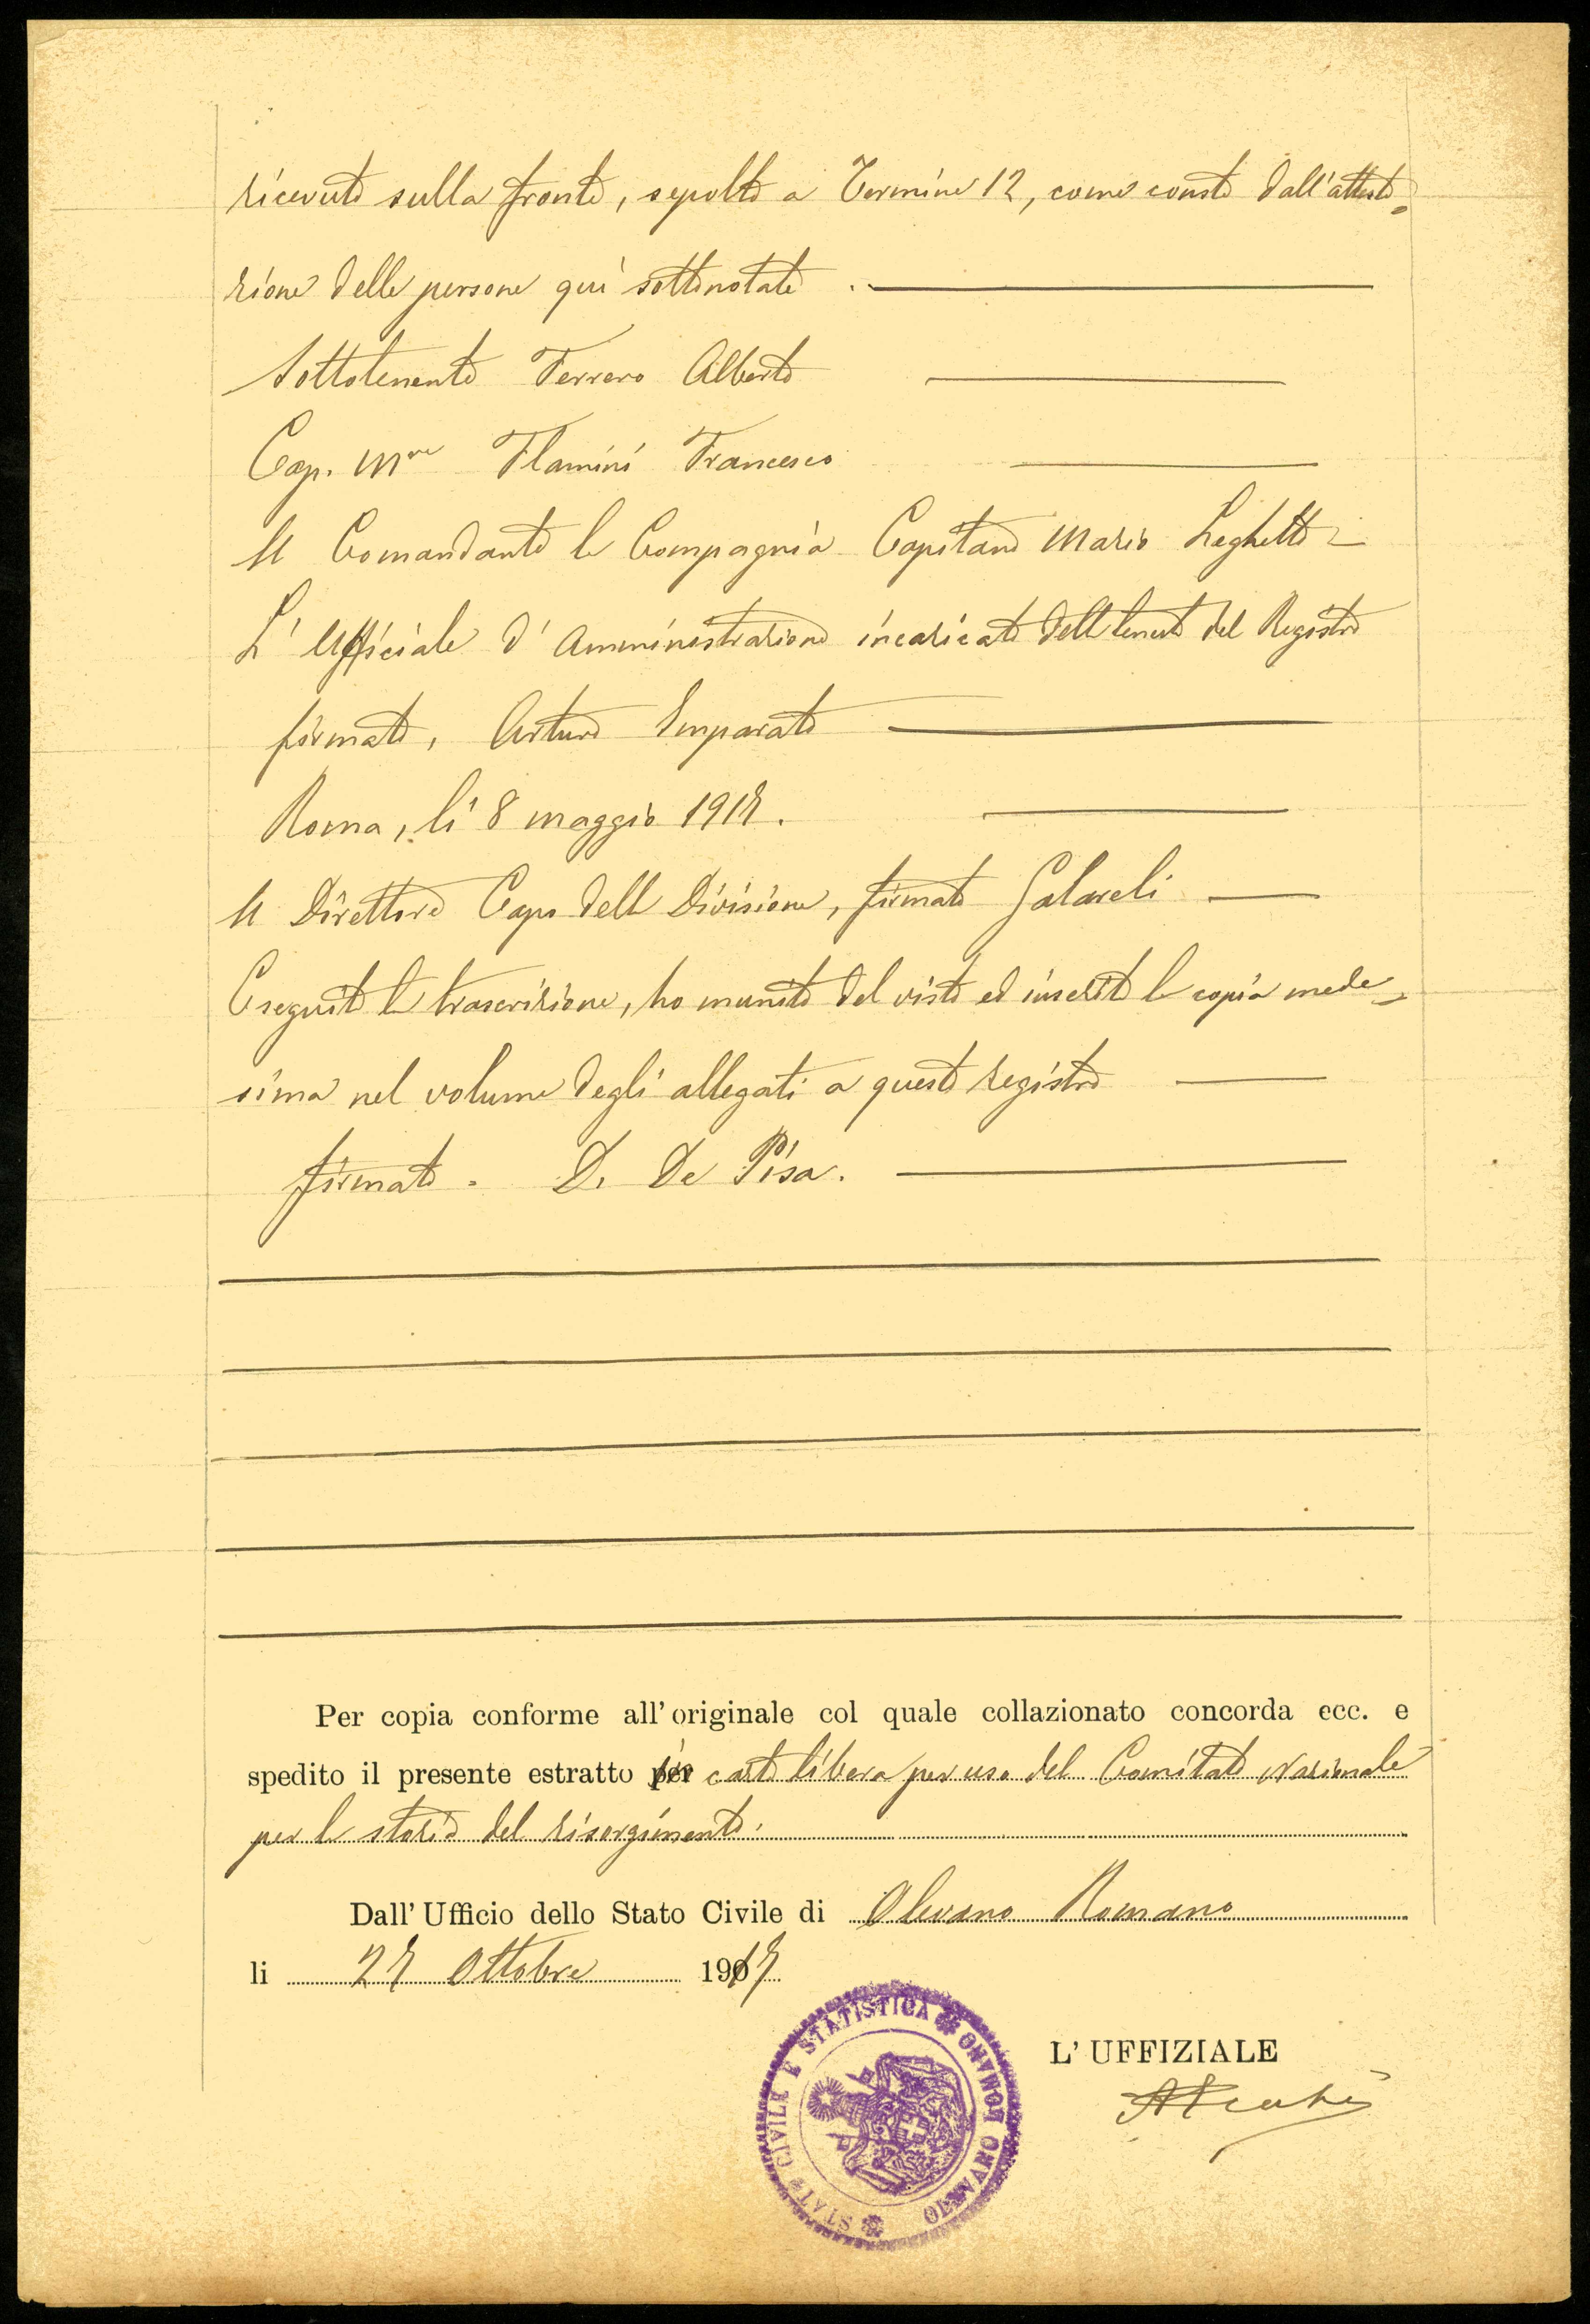 ricevuta sulla fronte, sepolto a Termine 12, come consta dall'attesta=
zione delle persone quì sottonotate.
Sottotenente Ferrero Alberto
Cap. Mre Flamini Francesco
Il Comandante la Compagnia Capitano Mario Leghetto
L'Ufficiale d'Amministrazione incaricato della tenuta del Registro
firmato, Arturo Imparato
Roma, lì 8 maggio 1917.
Il Direttore Capo della Divisione, firmato
Eseguita la trascrizione, ho munito del visto ed inserito la copia mede=
sima nel volume degli allegati a questo registro
firmato. D. De Pisa.
Per copia conforme all'originale col quale collazionato concorda ecc. e
spedito il presente estratto in carta libera per uso del Comitato Nazionale
per la storia del risorgimento.
Dall'Ufficio dello Stato Civile di Olevano Romano
li 27 Ottobre 1917
STATO CIVILE E STATISTICA OLEVANO ROMANO
L'UFFIZIALE